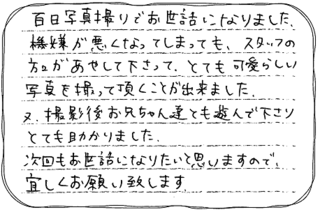 百日写真撮りでお世話になりました。
機嫌が悪くなってしまっても、スタッフの
方々があやして下さって、とても可愛らしい
写真を撮って頂くことが出来ました。
又、撮影後お兄ちゃん達とも遊んで下さり
とても助かりました。
次回もお世話になりたいと思いますので、
宜しくお願い致します。